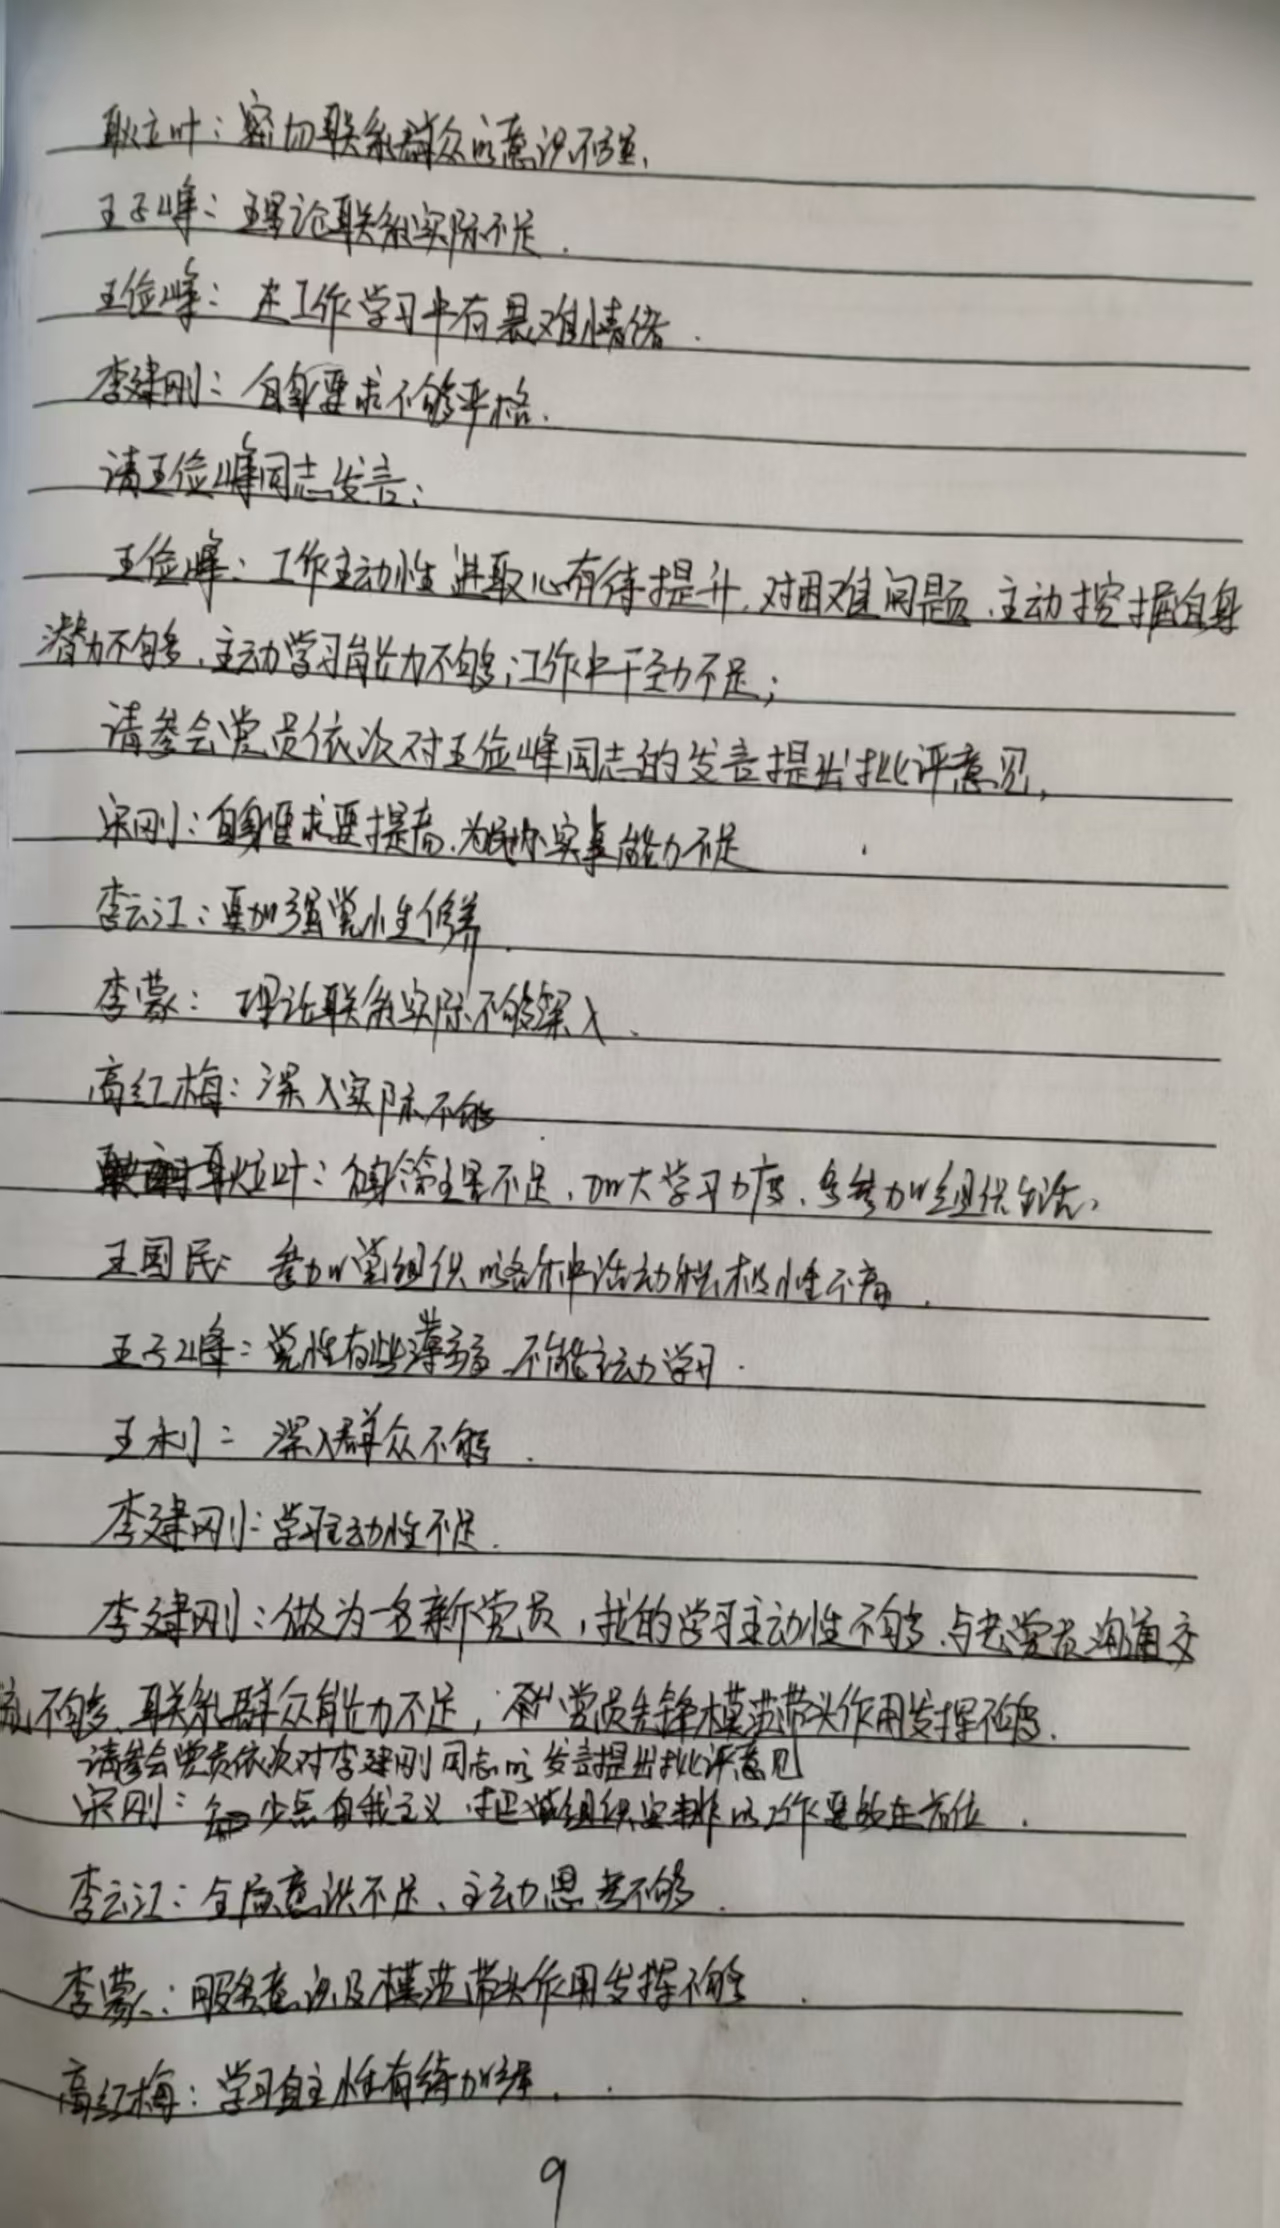 耿立叶：密切联系群众的意识不强、
王子峰：理论联系实际不足．
王俭峰：在工作学习中有畏难情绪．
李建刚：自身要求不够严格．
请王俭峰同志发言：
王俭峰：工作主动性进取心有待提升，对困难问题、主动挖掘自身
潜力不够，主动学习能力不够；工作中干劲不足；
请参会党员依次对王俭峰同志的发言提出批评意见，
宋刚：自身要求要提高，为民办实事能力不足
李云江：要加强党性修养．
李蒙：理论联系实际不够深入．
高红梅：深入实际不够．
耿立叶：自身管理不足，加大学习力度，多参加组织生活，
王国民：参加党组织的各种活动积极性不高．
王子峰：党性有些薄弱，不能主动学习．
王利：深入群众不够．
李建刚：学习主动性不足．
李建刚：做为一名新党员，我的学习主动性不够，与老党员沟通交
流不够，联系群众能力不足，党员先锋模范带头作用发挥不够．
请参会党员依次对李建刚同志的发言提出批评意见
宋刚：少点自我主义，把党组织安排的工作要放在首位．
李云江：全局意识不足、主动思考不够．
李蒙：服务意识及模范带头作用发挥不够．
高红梅：学习自主性有待加强．
9